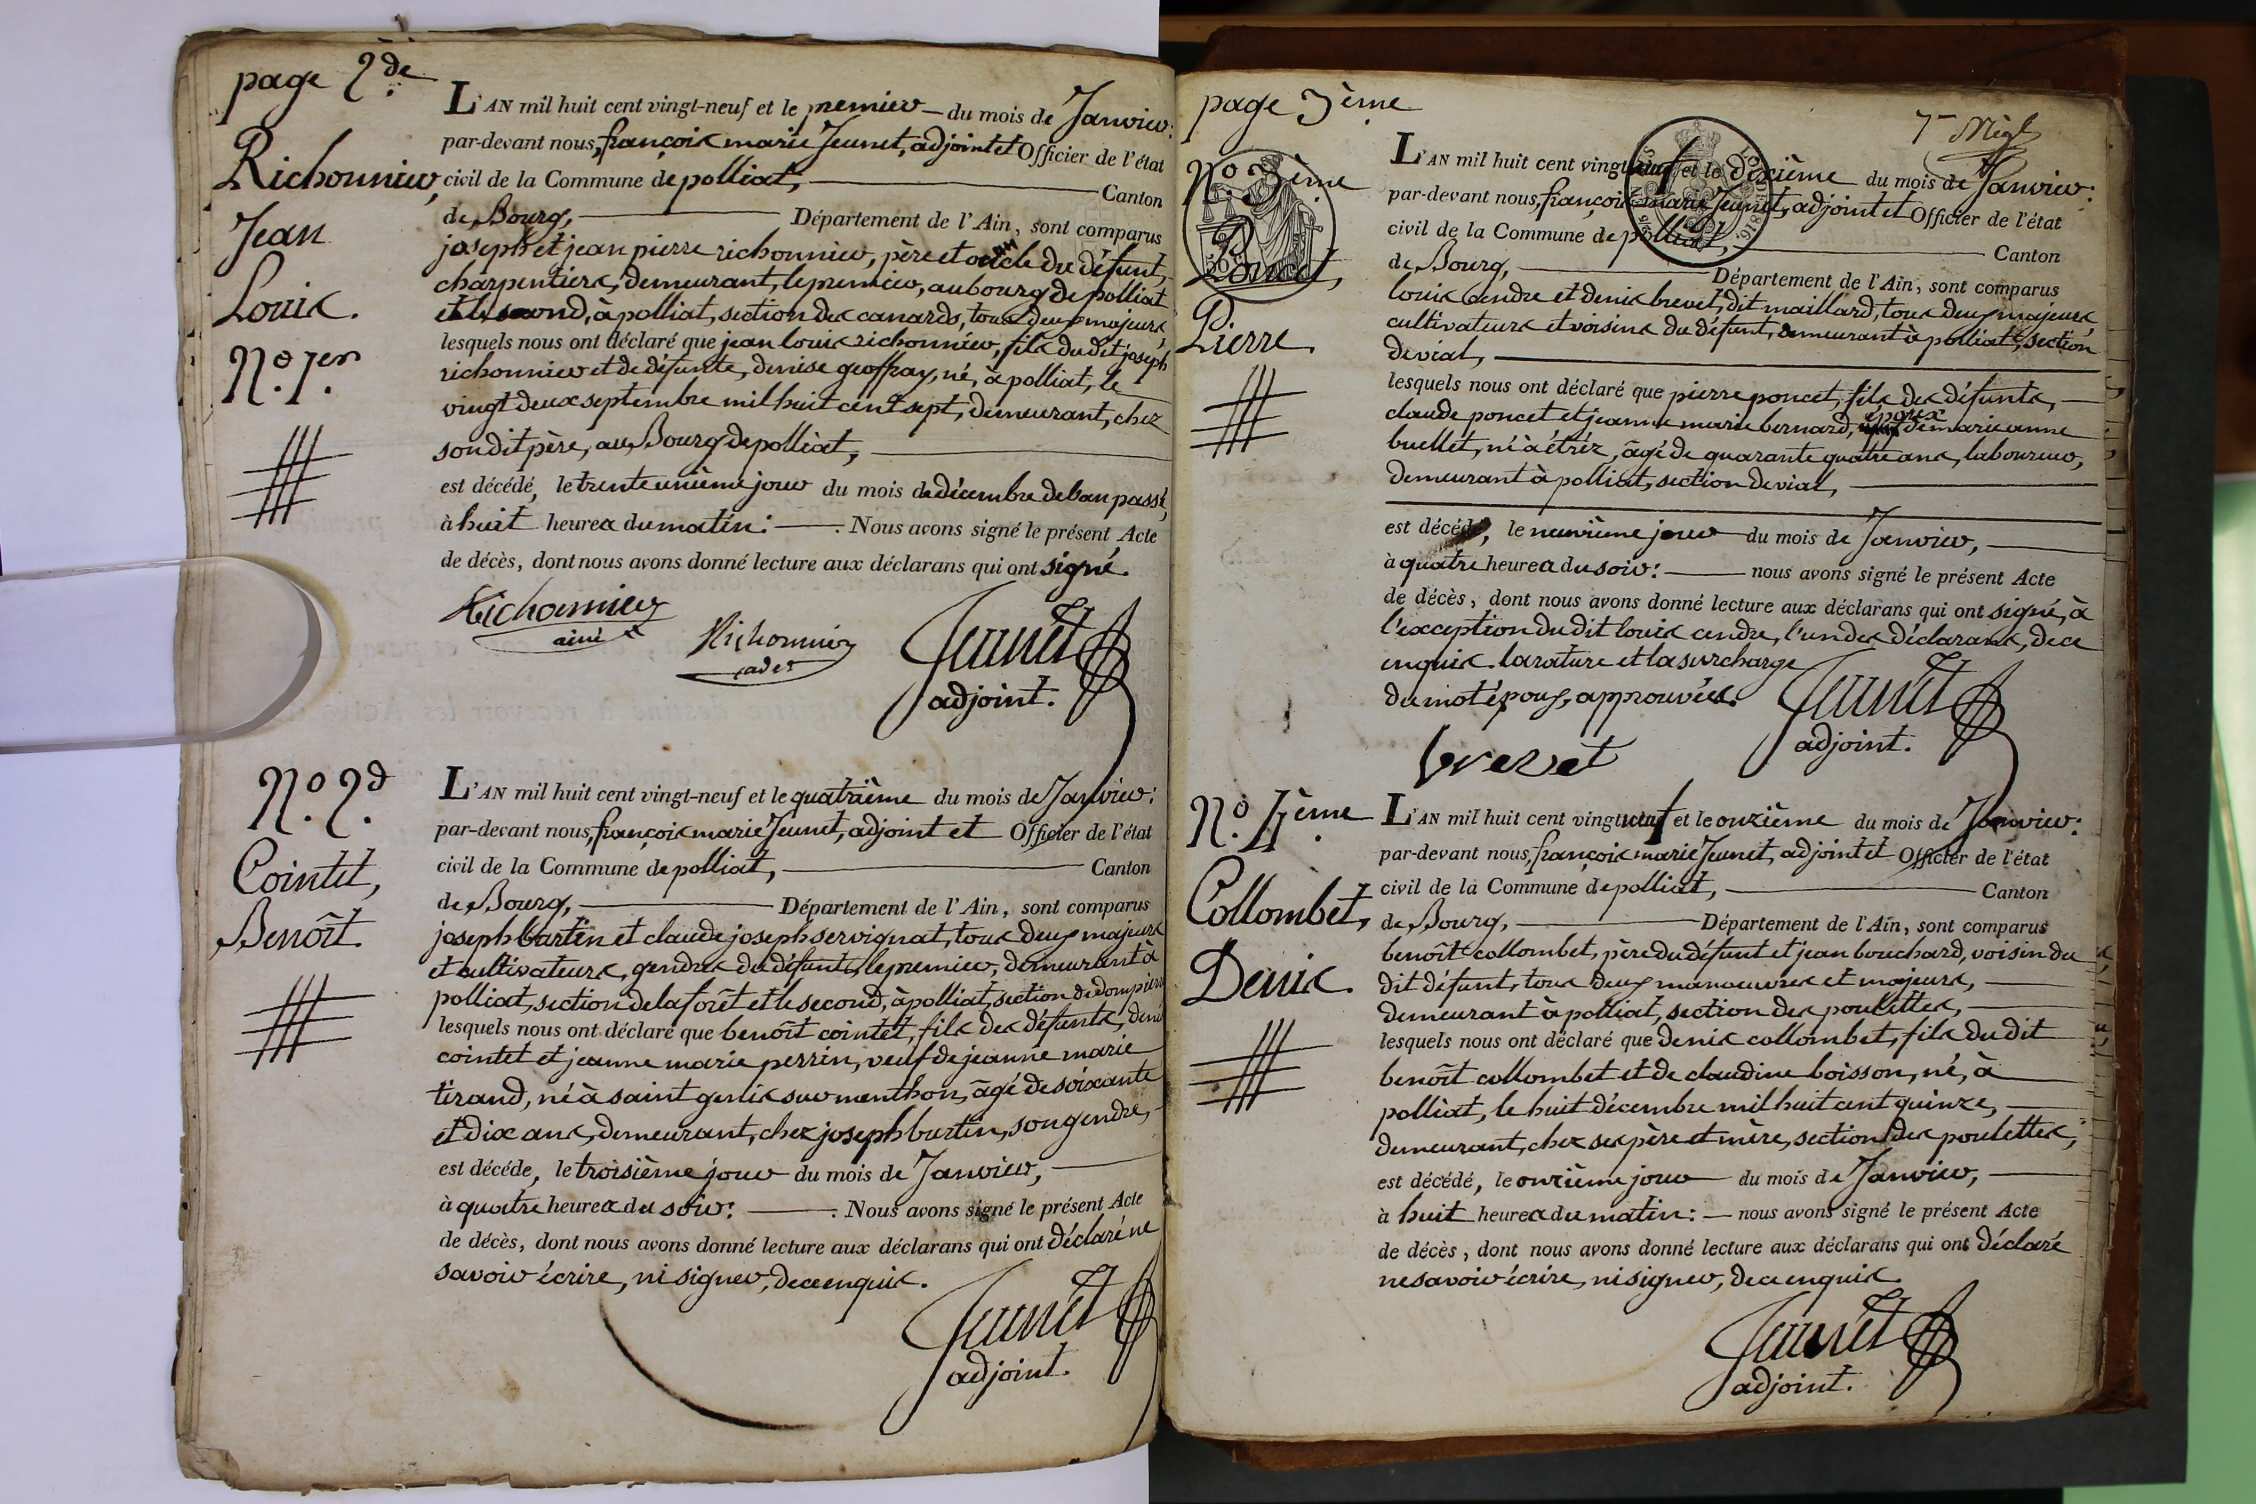 page 2de.
Richonnier,
Jean
Louis.
No. 1er.
L'AN mil huit cent vingt-neuf et le premier du mois de Janvier:
par-devant nous, françois marie Jeunet, adjoint et Officier de l'état
civil de la Commune de polliat, Canton
de Bourg, Département de l'Ain, sont comparus
joseph et jean pierre richonnier, père et oncle du défunt,
charpentiers, demeurant, le premier, au bourg de polliat
et le second, à polliat, section des canards, tous deux majeurs,
lesquels nous ont déclaré que jean louis richonnier, fils du dit joseph
richonnier et de défunte, denise geoffray, né, à polliat, le
vingt deux septembre mil huit cent sept, demeurant, chez
son dit père, au Bourg de polliat,
est décédé, le trente unième jour du mois de décembre de l'an passé,
à huit heures du matin: Nous avons signé le présent Acte
de décès, dont nous avons donné lecture aux déclarans qui ont signé.
Richonnier
ainé
Richonnier
cadet
Jeunet
adjoint.
No. 2d.
Cointet,
Benoît.
L'AN mil huit cent vingt-neuf et le quatrième du mois de Janvier:
par-devant nous, françois marie Jeunet, adjoint et Officier de l'état
civil de la Commune de polliat, Canton
de Bourg, Département de l'Ain, sont comparus
joseph burtin et claude joseph servignat, tous deux majeurs
et cultivateurs, gendres du défunt, le premier, demeurant à
polliat, section de la forêt et le second, à polliat, section de dompierre
lesquels nous ont déclaré que benoît cointet, fils des défunts, denis
cointet et jeanne marie perrin, veuf de jeanne marie
tirand, né à saint genis sur menthon, âgé de soixante
et dix ans, demeurant, chez joseph burtin, son gendre,
est décédé, le troisième jour du mois de Janvier,
à quatre heures du soir: Nous avons signé le présent Acte
de décès, dont nous avons donné lecture aux déclarans qui ont déclaré ne
savoir écrire, ni signer, de ce enquis.
Jeunet
adjoint.
page 3ème
No. 3ème
Poncet,
Pierre.
L'AN mil huit cent vingt neuf et le dixième du mois de Janvier:
par-devant nous, françois marie Jeunet, adjoint et Officier de l'état
civil de la Commune de polliat, Canton
de Bourg, Département de l'Ain, sont comparus
louis cendre et denis brevet, dit maillard, tous deux majeurs,
cultivateurs et voisins du défunt, demeurant à polliat, section
de vial,
lesquels nous ont déclaré que pierre poncet, fils des défunts,
claude poncet et jeanne marie bernard, époux de marie anne
buellet, né à étréz, âgé de quarante quatre ans, laboureur,
demeurant à polliat, section de vial,
est décédé, le neuvième jour du mois de Janvier,
à quatre heures du soir: nous avons signé le présent Acte
de décès, dont nous avons donné lecture aux déclarans qui ont signé, à
l'exception du dit louis cendre, l'un des déclarans, de ce
enquis. la rature et la surcharge
du mot époux, approuvées.
Jeunet
adjoint.
brevet
No. 4ème
Collombet,
Denis.
L'AN mil huit cent vingt neuf et le onzième du mois de Janvier:
par-devant nous, françois marie Jeunet, adjoint et Officier de l'état
civil de la Commune de polliat, Canton
de Bourg, Département de l'Ain, sont comparus
benoît collombet, père du défunt et jean bouchard, voisin du
dit défunt, tous deux manoeuvres et majeurs,
demeurant à polliat, section des poulettes,
lesquels nous ont déclaré que denis collombet, fils du dit
benoît collombet et de claudine boisson, né, à
polliat, le huit décembre mil huit cent quinze,
demeurant, chez ses père et mère, section des poulettes,
est décédé, le onzième jour du mois de Janvier,
à huit heures du matin: nous avons signé le présent Acte
de décès, dont nous avons donné lecture aux déclarans qui ont déclaré
ne savoir écrire, ni signer, de ce enquis.
Jeunet
adjoint.